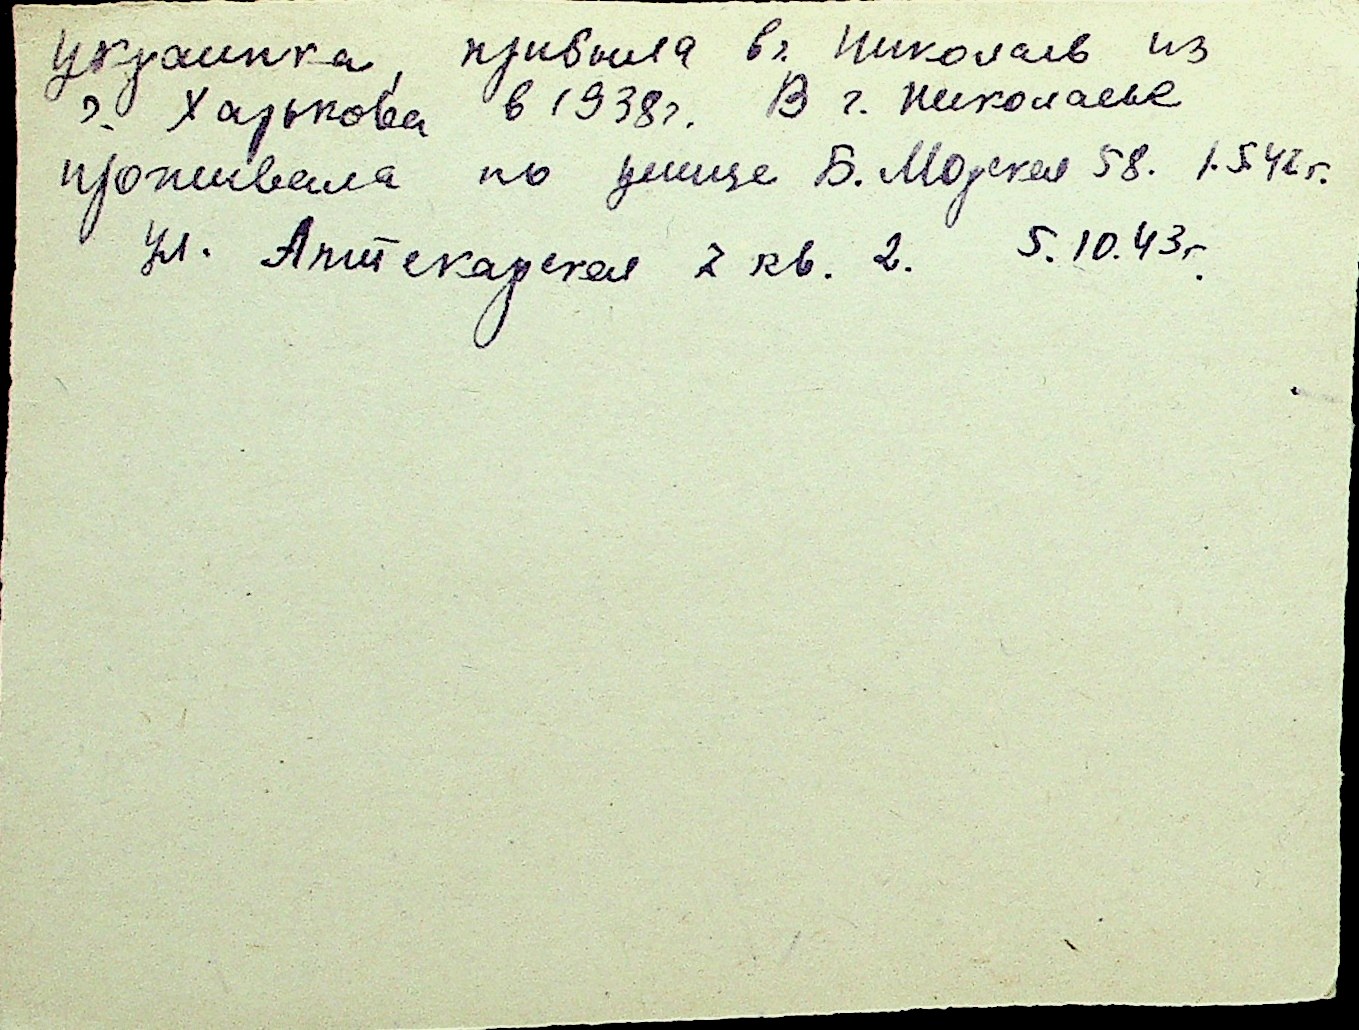 украинка, прибыла в г. Николаев из
г. Харькова в 1938г. В г. Николаеве
проживала по улице Б. Морская 58. 1.5.42г.
ул. Аптекарская 2 кв. 2. 5.10.43г.